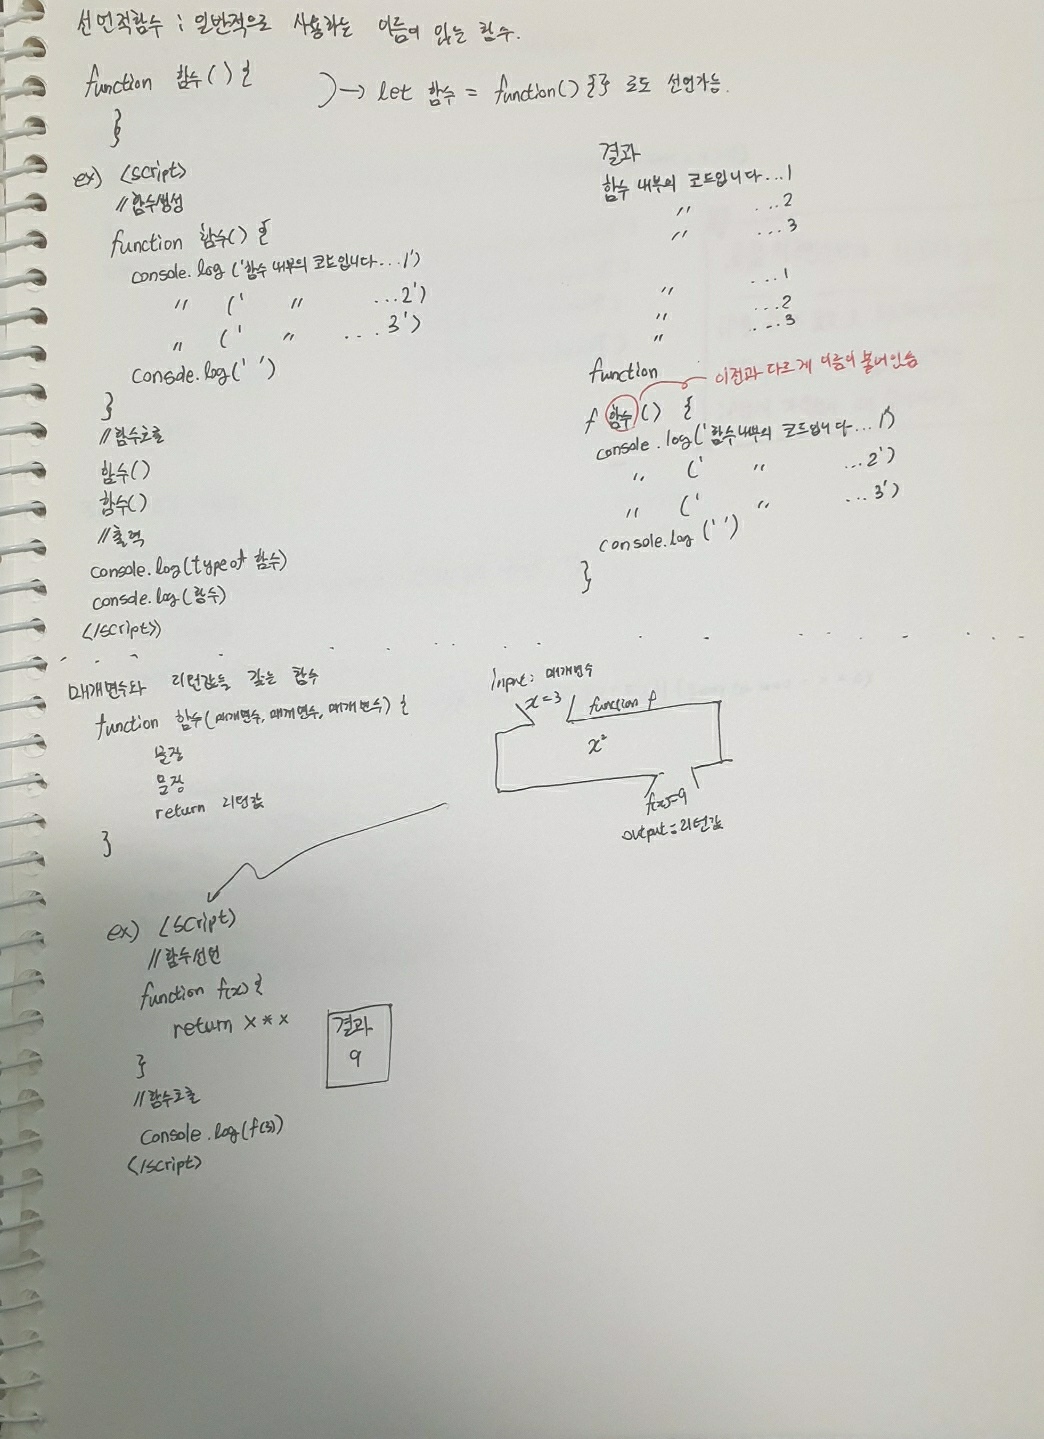 선언적함수 : 일반적으로 사용하는 이름이 있는 함수.
function 함수() {
}
→ let 함수 = function() {} 로도 선언가능.
ex) <script>
//함수생성
function 함수() {
console.log('함수 내부의 코드입니다...1')
〃 (' 〃 ...2')
〃 (' 〃 ...3')
console.log(' ')
}
//함수호출
함수()
함수()
//출력
console.log(typeof 함수)
console.log(함수)
</script>
결과
함수 내부의 코드입니다...1
〃 ...2
〃 ...3
〃 ...1
〃 ...2
〃 ...3
function
이전과 다르게 이름이 붙어있음
f 함수() {
console.log('함수내부의 코드입니다...1')
〃 (' 〃 ...2')
〃 (' 〃 ...3')
console.log(' ')
}
매개변수와 리턴값을 갖는 함수
function 함수(매개변수, 매개변수, 매개변수) {
문장
문장
return 리턴값
}
Input: 매개변수
x=3 function f
x²
f(x)=9
output: 리턴값
ex) <script>
//함수선언
function f(x) {
return x*x
}
//함수호출
console.log(f(3))
</script>
결과
9